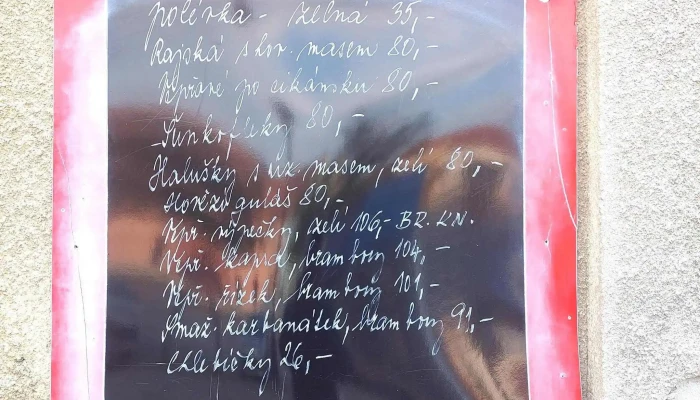 polévka - zelná 35,-
Rajská s hov. masem 80,-
Vepřové po cikánsku 80,-
Šunkofleky 80,-
Halušky s uz. masem, zelí 80,-
Hovězí guláš 80,-
Vepř. výpečky, zelí 106,- BR. KN.
Vepř. kapsa, brambory 104,-
Vepř. řízek, brambory 101,-
Smaž. karbanátek, brambory 91,-
Chlebíčky 26,-